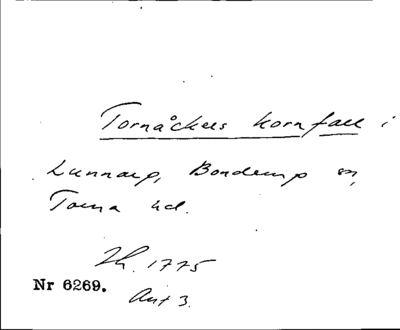 Tornåckers kornfall i
Lunnarp, Bonderup sn,
Torna hd.
Lh. 1775
Nr 6269.
Akt 3.